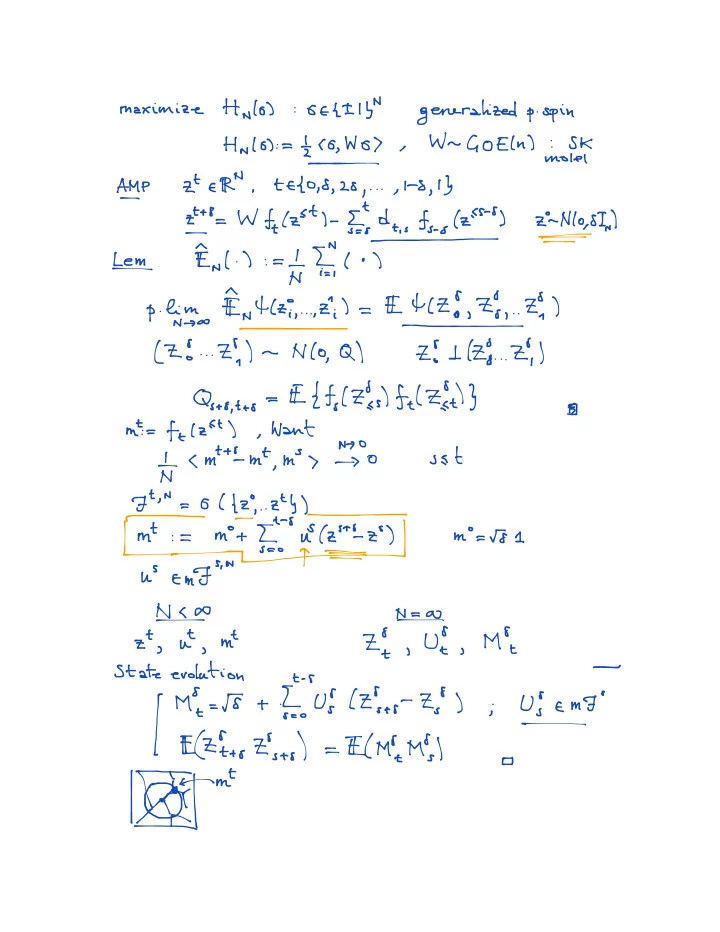 maximize H_N(σ) : σ∈{±1}^N generalized p-spin
H_N(σ) := 1/2 <σ, Wσ> , W ~ GOE(n) : SK model
AMP z^t ∈ ℝ^N , t∈{0,δ,2δ,...,1-δ,1}
z^{t+δ} = W f_t(z^{≤t}) - Σ_{s=δ}^{t} d_{t,s} f_{s-δ}(z^{≤s-δ}) z^0 ~ N(0,δI_N)
Lem Ê_N(·) := 1/N Σ_{i=1}^N (·)
p-lim_{N→∞} Ê_N ψ(z_i^0,...,z_i^1) = 𝔼 ψ(Z_0^δ, Z_δ^δ,..Z_1^δ)
(Z_0^δ ... Z_1^δ) ~ N(0,Q) Z_0^δ ⊥ (Z_δ^δ... Z_1^δ)
Q_{s+δ,t+δ} = 𝔼{f_s(Z_{≤s}^δ) f_t(Z_{≤t}^δ)}
m^t := f_t(z^{≤t}) , Want
1/N <m^{t+δ} - m^t, m^s> →^{N→0} 0 s≤t
ℱ^{t,N} = σ({z^0,..z^t})
m^t := m^0 + Σ_{s=0}^{t-δ} u^s(z^{s+δ} - z^s) m^0 = √δ 1
u^s ∈ mℱ^{s,N}
N<∞ N=∞
z^t, u^t, m^t Z_t^δ, U_t^δ, M_t^δ
State evolution
M_t^δ = √δ + Σ_{s=0}^{t-δ} U_s^δ (Z_{s+δ}^δ - Z_s^δ) ; U_s^δ ∈ mℱ
𝔼(Z_{t+δ}^δ Z_{s+δ}^δ) = 𝔼(M_t^δ M_s^δ) □
m^t